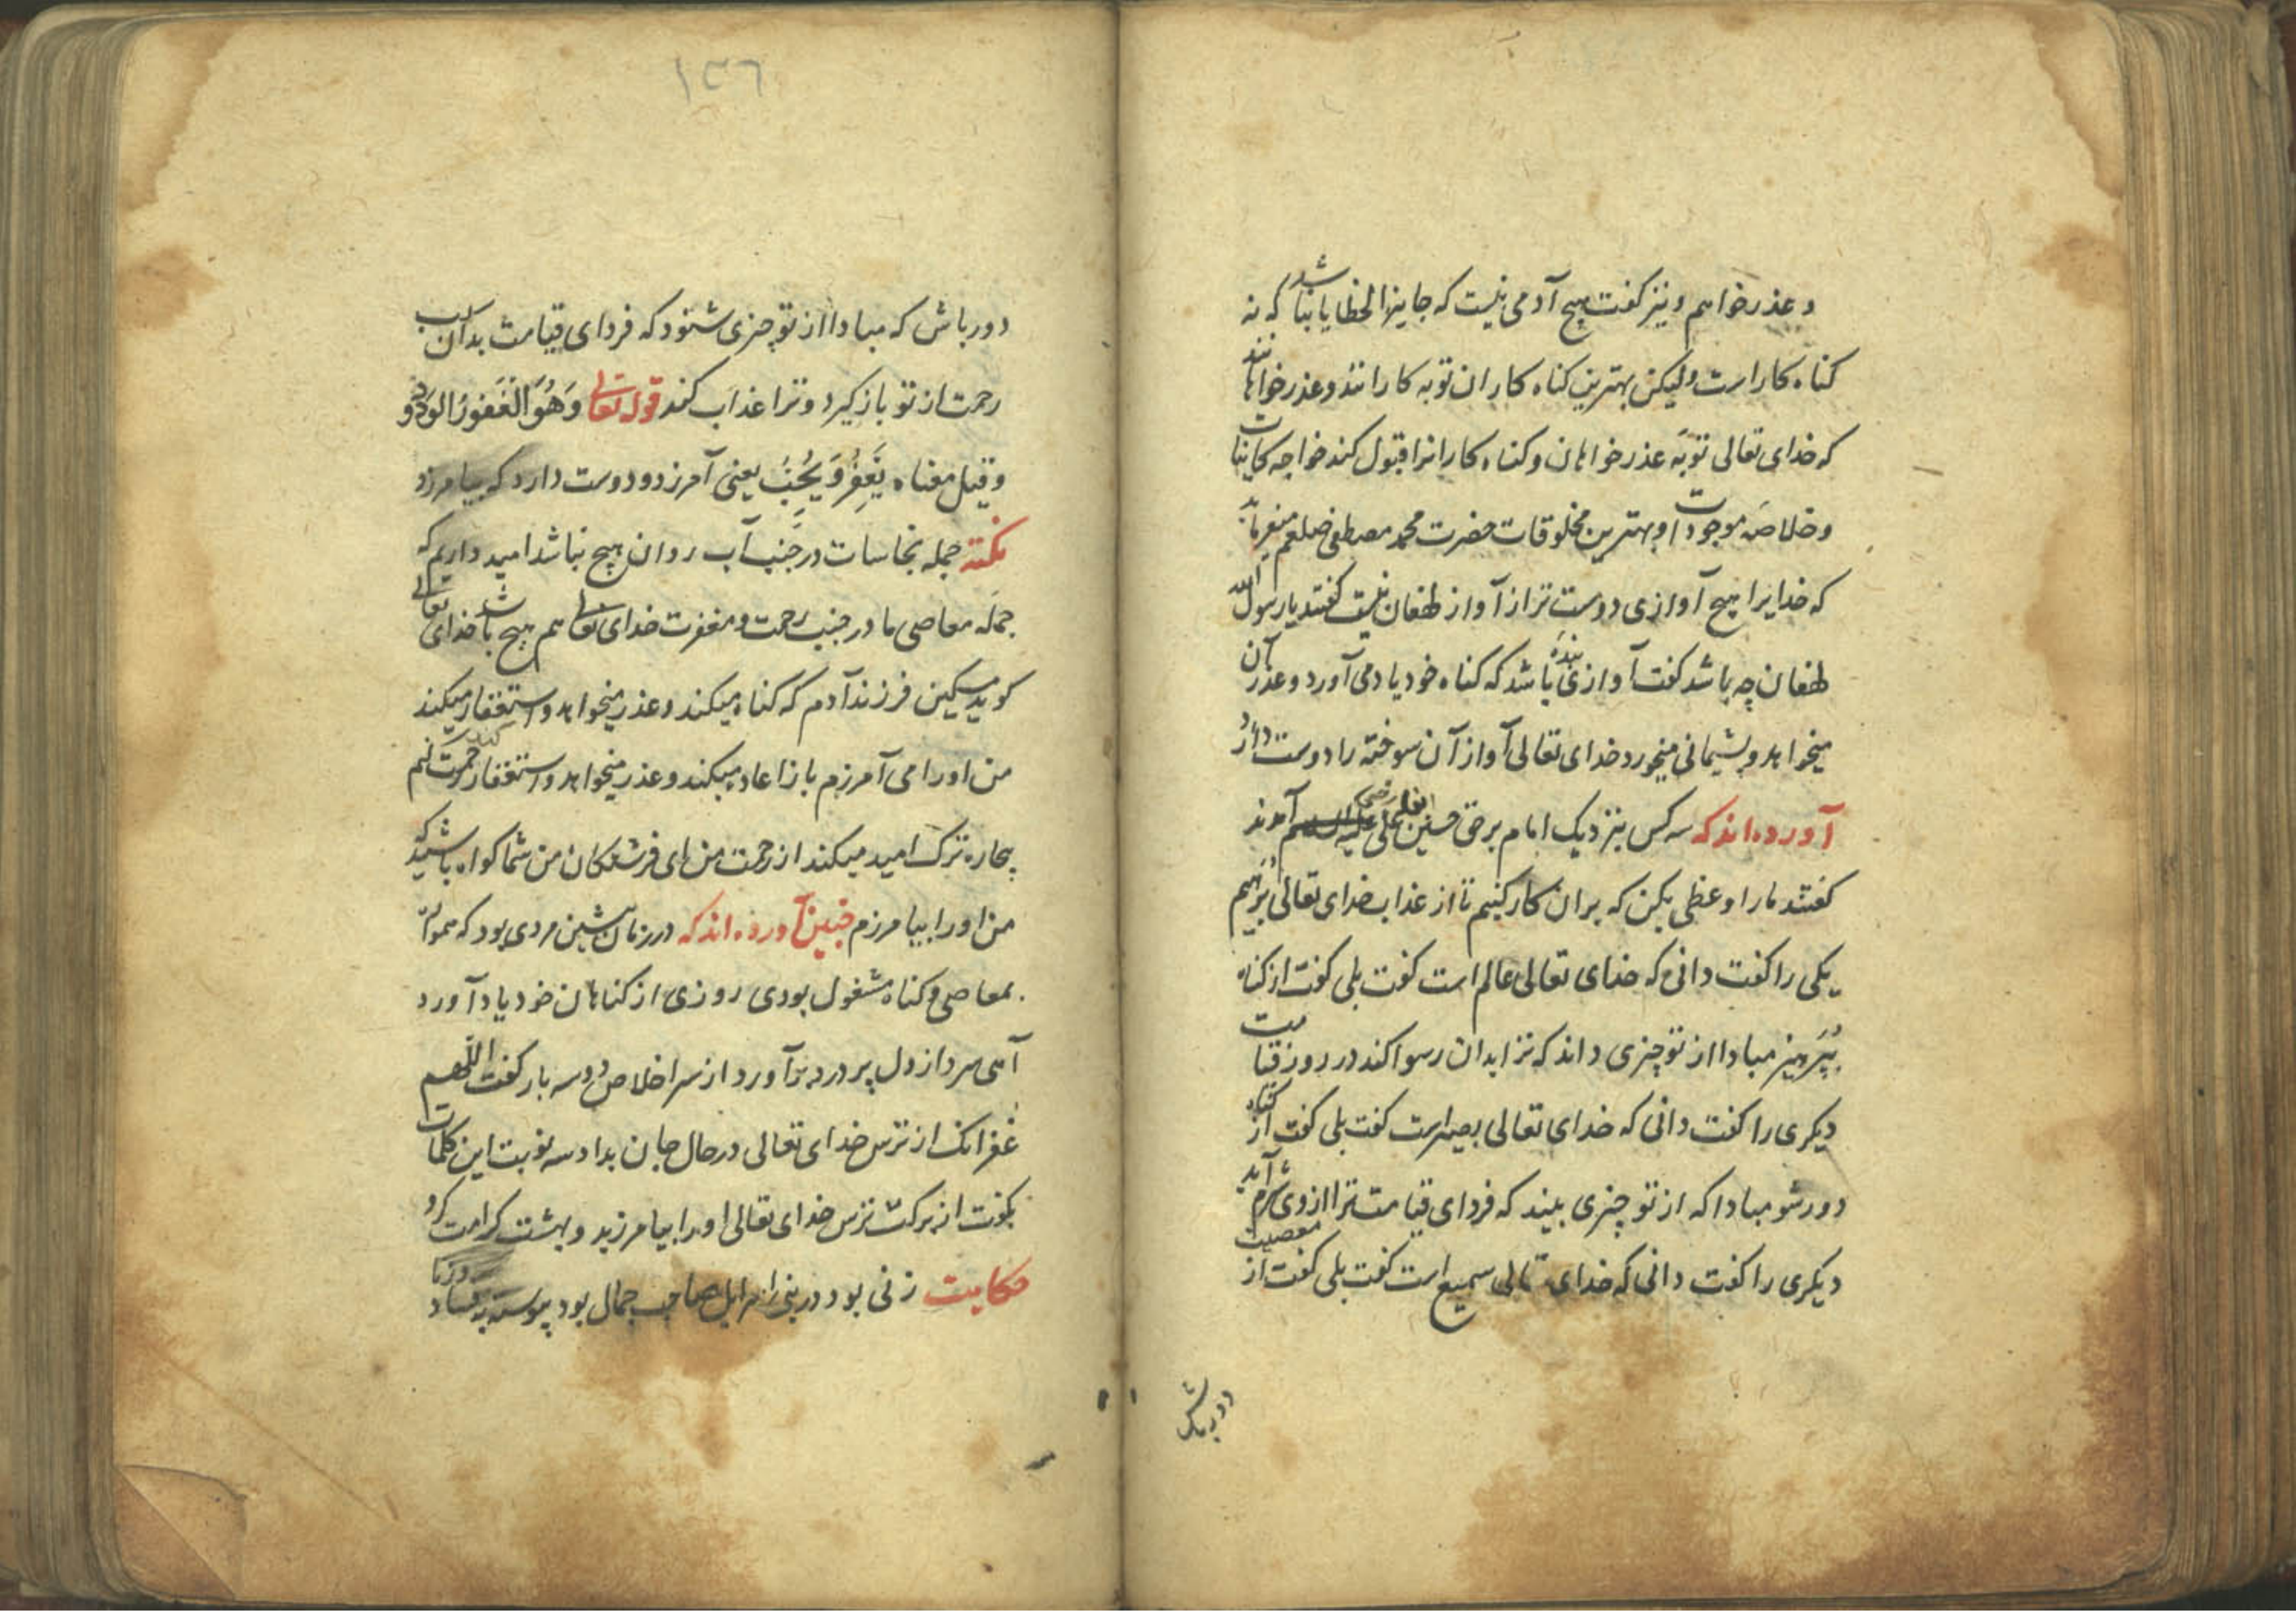 و عذر خواهم و نیز گفت هیچ آدمی نیست که جایز الخطایا نباشد که نه
کناه کار است ولیکن بهترین کناه کاران توبه کارانند و عذر خواهانند
که خدای تعالی توبهٔ عذر خواهان و کناه کارانرا قبول کند خواجه کاینات
و خلاصه موجودات و بهترین مخلوقات حضرت محمد مصطفی صلعم میفرماید
که خدایرا هیچ آوازی دوست تر از آواز لهفان نیست کفتند یا رسول الله
لهفان چه باشد کفت آواز بندهٔ باشد که کناه خود یاد می آورد و عذر آن
میخواهد و پشیمانی میخورد خدای تعالی آواز آن سوخته را دوست دارد
آورده اند که سه کس بنزدیک امام برحق حسین علی آمدند
کفتند ما را وعظی بکن که بران کار کنیم تا از عذاب خدای تعالی برهیم
یکی را کفت دانی که خدای تعالی عالم است کفت بلی کفت از کناه
بپرهیز مبادا از تو چیزی داند که ترا بدان رسوا کند در روز قیامت
دیکری را کفت دانی که خدای تعالی بصیر است کفت بلی کفت از کناه
دور شو مبادا که از تو چیزی بیند که فردای قیامت ترا از وی شرم آید
دیکری را کفت دانی که خدای تعالی سمیع است کفت بلی کفت از معصیت
دور باش
١٣٦
دور باش که مبادا از تو چیزی شنود که فردای قیامت بدان سبب
رحمت از تو باز کیرد و ترا عذاب کند قوله تعالی وَهُوَ الْغَفُورُ الْوَدُودُ
و قیل معناه یَغْفِرُ وَ یُحِبُّ یعنی آمرزد و دوست دارد که بیامرزد
نکته جمله نجاسات در جنب آب روان هیچ نباشد امید داریم که
جمله معاصی ما در جنب رحمت و مغفرت خدای تعالی هم هیچ باشد خدای تعالی
کوید مسکین فرزند آدم که کناه میکند و عذر میخواهد و استغفار میکند
من او را می آمرزم باز اعاده میکند و عذر میخواهد و استغفار کند رحمت کنم
بیچاره ترک امید میکند از رحمت من ای فرشتکان من شما کواه باشید که
من او را بیامرزم چنین آورده اند که در زمان پیشین مردی بود که همواره
بمعاصی و کناه مشغول بودی روزی از کناهان خود یاد آورد
آهی سرد از دل پر درد برآورد از سر اخلاص دو سه بار کفت اللهم
غُفرانک از ترس خدای تعالی در حال جان بداد سه نوبت این کلمات
بکفت از برکت ترس خدای تعالی او را بیامرزید و بهشت کرامت کرد
حکایت زنی بود در بنی اسرائیل صاحب جمال بود پیوسته بفساد و زنا